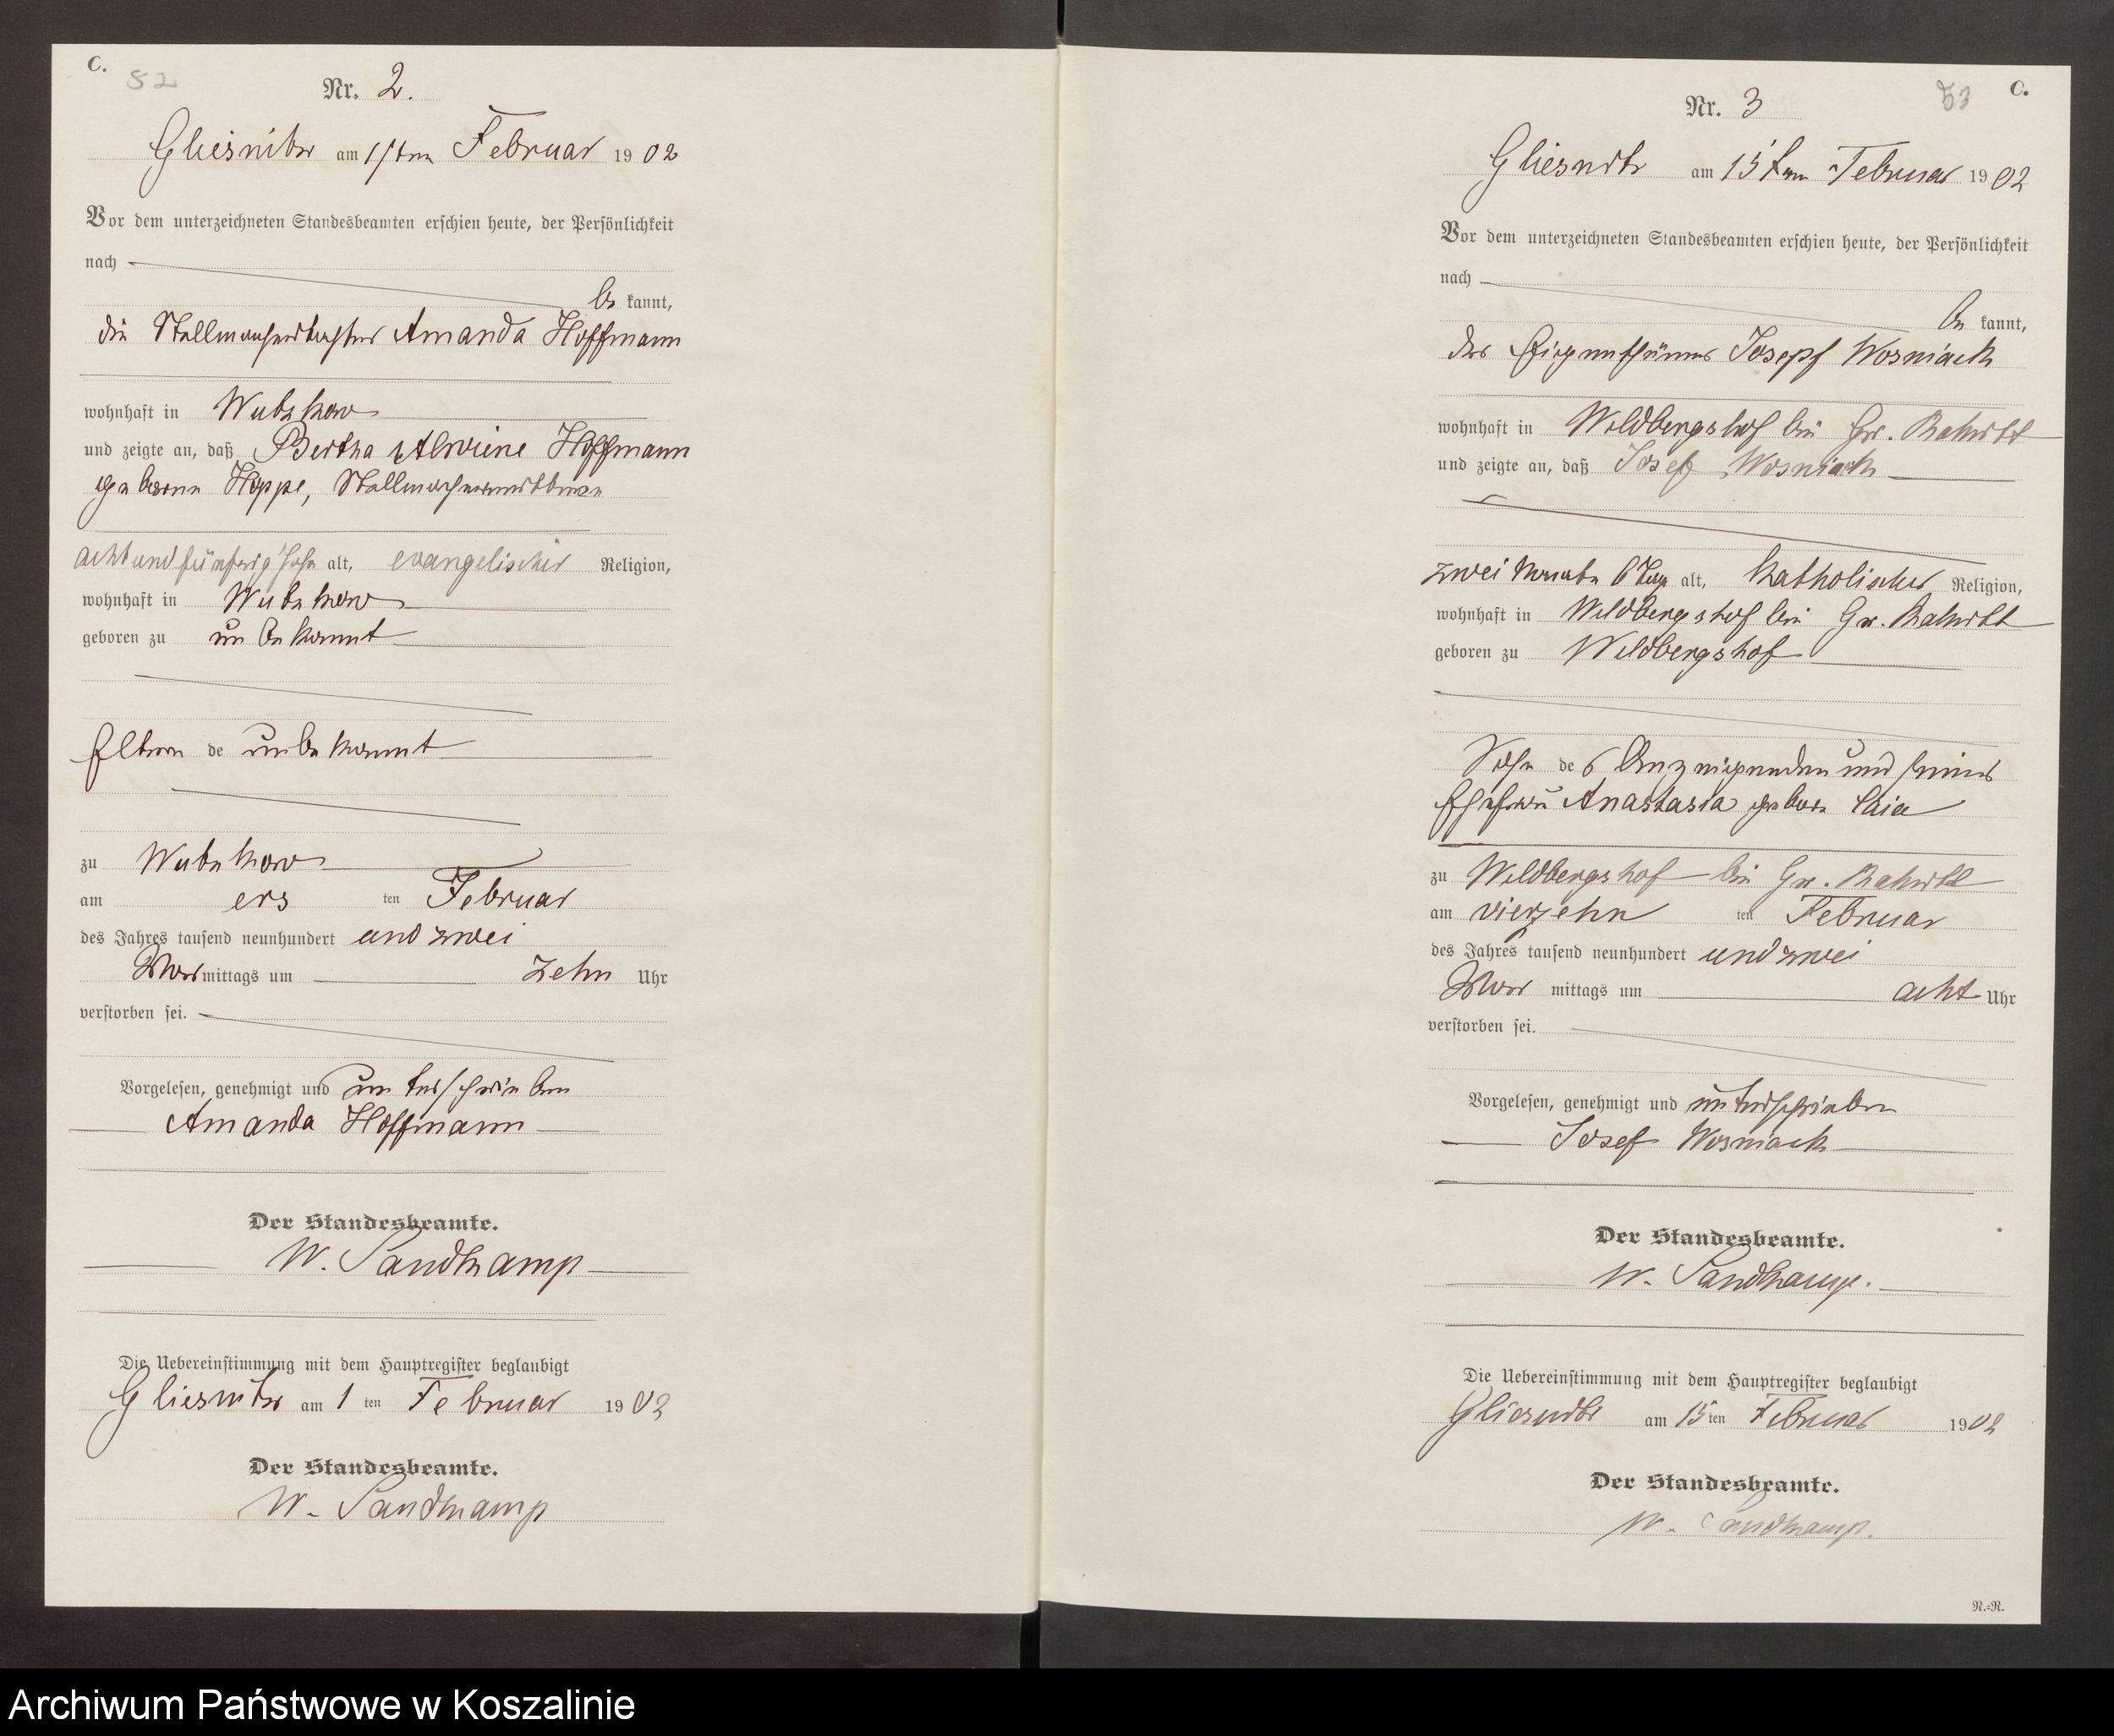 C.
52
Nr. 2.
Gliesnitz am 1sten Februar 1902
Vor dem unterzeichneten Standesbeamten erschien heute, der Persönlichkeit
nach
be kannt,
die Stellmachertochter Amanda Hoffmann
wohnhaft in Wutzkow
und zeigte an, daß Bertha Alwiene Hoffmann
geborene Hoppe, Stellmacherwittwe
achtundfünfzig Jahr alt, evangelischer Religion,
wohnhaft in Wutzkow
geboren zu unbekannt
Eltern de unbekannt
zu Wutzkow
am ers ten Februar
des Jahres tausend neunhundert und zwei
Vor mittags um zehn Uhr
verstorben sei.
Vorgelesen, genehmigt und unterschrieben
Amanda Hoffmann
Der Standesbeamte.
W. Sandkamp
Die Uebereinstimmung mit dem Hauptregister beglaubigt
Gliesnitz am 1 ten Februar 1902
Der Standesbeamte.
W. Sandkamp
C.
53
Nr. 3
Gliesnitz am 15ten Februar 1902
Vor dem unterzeichneten Standesbeamten erschien heute, der Persönlichkeit
nach
be kannt,
der Eigenthümer Joseph Wosniack
wohnhaft in Wildbergshof bei Gr. Rakitt
und zeigte an, daß Josef Wosniack
zwei Monate 6 Tage alt, katholischer Religion,
wohnhaft in Wildbergshof bei Gr. Rakitt
geboren zu Wildbergshof
Sohn des Anzeigenden und seiner
Ehefrau Anastasia geborn
zu Wildbergshof bei Gr. Rakitt
am vierzehn ten Februar
des Jahres tausend neunhundert und zwei
Vor mittags um acht Uhr
verstorben sei.
Vorgelesen, genehmigt und unterschrieben
Josef Wosniack
Der Standesbeamte.
W. Sandkamp.
Die Uebereinstimmung mit dem Hauptregister beglaubigt
Gliesnitz am 15 ten Februar 1902
Der Standesbeamte.
W. Sandkamp.
N.-N.
Archiwum Państwowe w Koszalinie